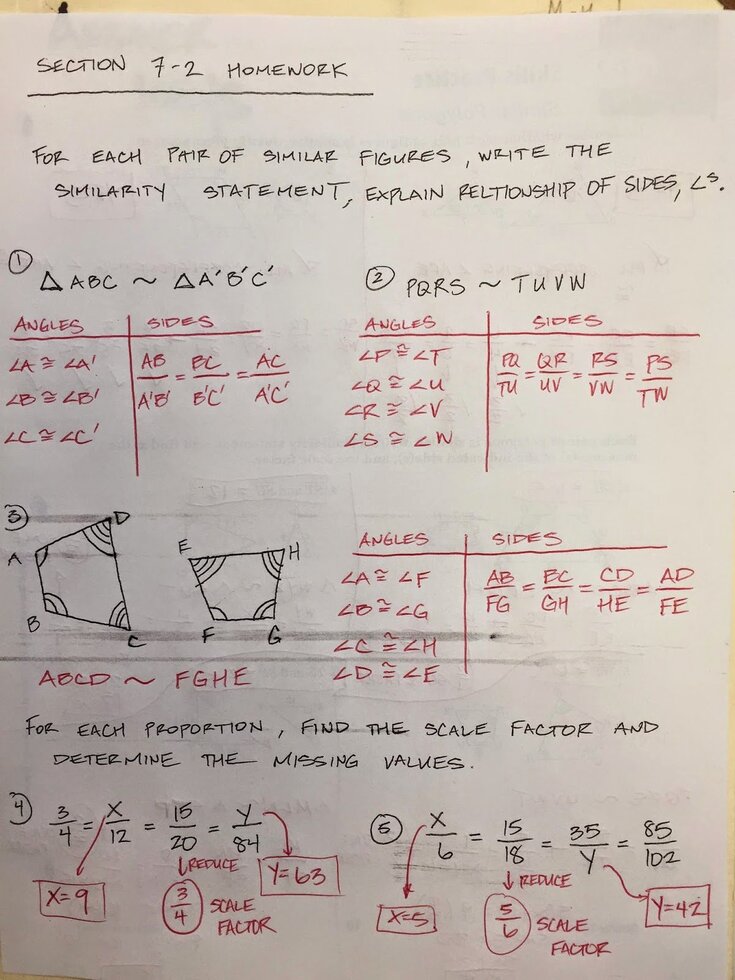 SECTION 7-2 HOMEWORK
FOR EACH PAIR OF SIMILAR FIGURES, WRITE THE
SIMILARITY STATEMENT, EXPLAIN RELTIONSHIP OF SIDES, ∠S.
① △ABC ~ △A'B'C'
ANGLES SIDES
∠A ≅ ∠A' AB/A'B' = BC/B'C' = AC/A'C'
∠B ≅ ∠B'
∠C ≅ ∠C'
② PQRS ~ TUVW
ANGLES SIDES
∠P ≅ ∠T PQ/TU = QR/UV = RS/VW = PS/TW
∠Q ≅ ∠U
∠R ≅ ∠V
∠S ≅ ∠W
③
D
A
B
C
E H
F G
ABCD ~ FGHE
ANGLES SIDES
∠A ≅ ∠F AB/FG = BC/GH = CD/HE = AD/FE
∠B ≅ ∠G
∠C ≅ ∠H
∠D ≅ ∠E
FOR EACH PROPORTION, FIND THE SCALE FACTOR AND
DETERMINE THE MISSING VALUES.
④ 3/4 = X/12 = 15/20 = Y/84
↓ REDUCE
X=9 3/4 SCALE FACTOR Y=63
⑤ X/6 = 15/18 = 35/Y = 85/102
↓ REDUCE
X=5 5/6 SCALE FACTOR Y=42